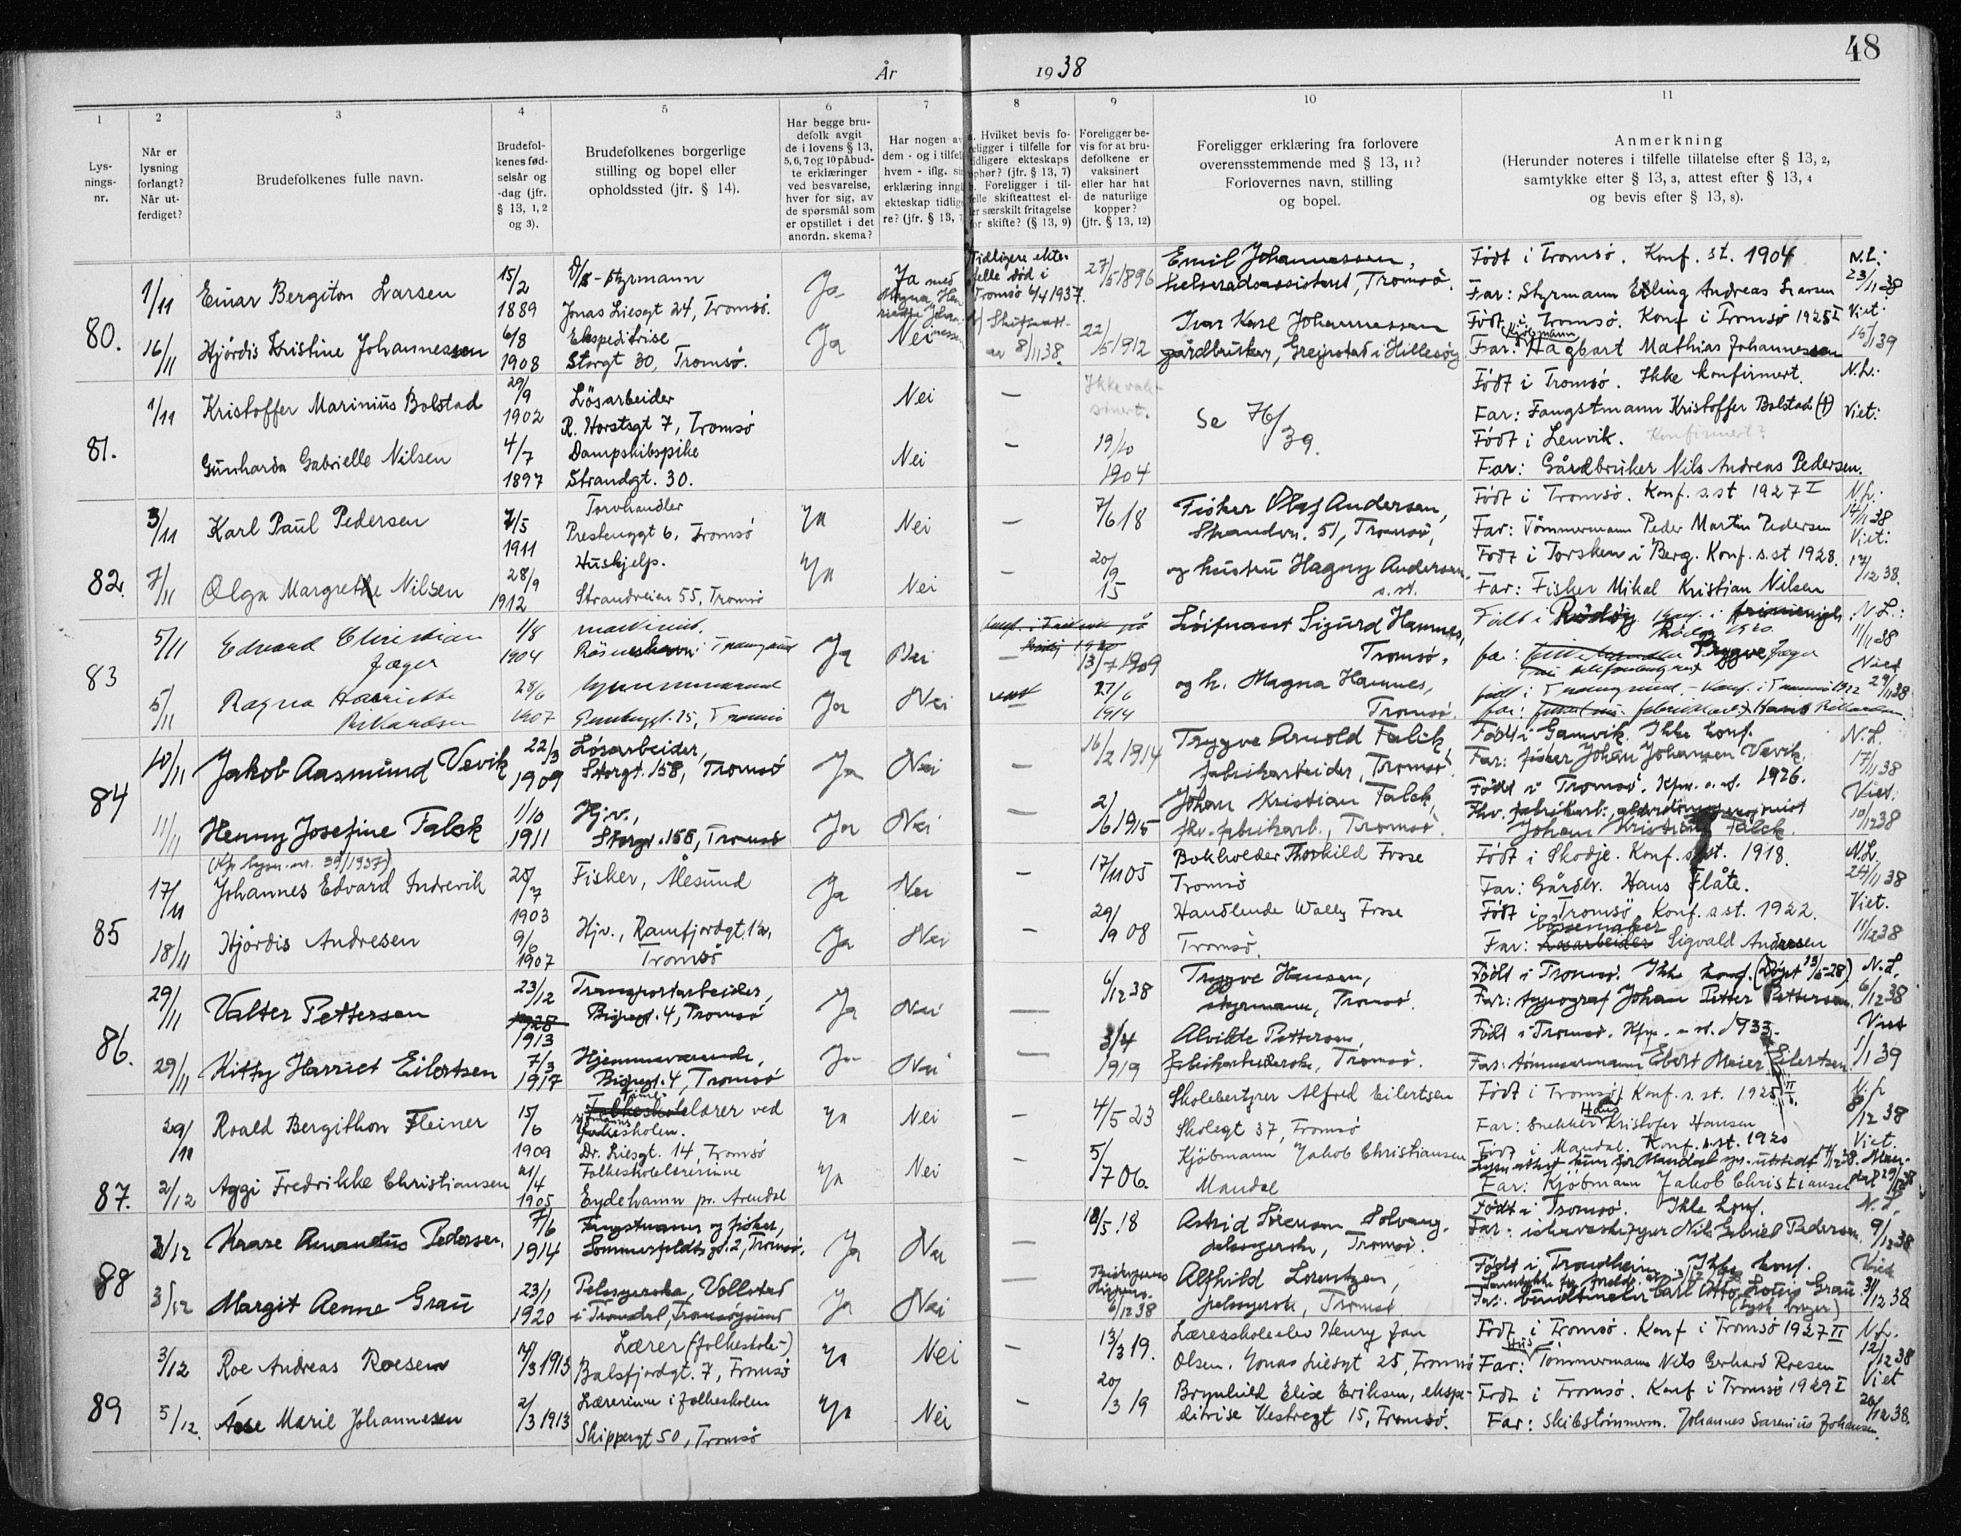 48
År 1938
1 2 3 4 5 6 7 8 9 10 11
Lys-
nings-
nr.
Når er
lysning
forlangt?
Når ut-
ferdiget?
Brudefolkenes fulle navn.
Brudefol-
kenes fød-
selsår og
-dag (jfr.
§ 13, 1, 2
og 3).
Brudefolkenes borgerlige
stilling og bopel eller
opholdssted (jfr. § 14).
Har begge bru-
defolk avgit
de i lovens § 13,
5, 6, 7 og 10 påbud-
te erklæringer
ved besvarelse,
hver for sig, av
de spørsmål som
er opstillet i det
anordn. skema?
Har nogen av
dem - og i tilfel
hvem - iflg. si
erklæring inng
ekteskap tidlig
re? (jfr. § 13, 7
Hvilket bevis fo-
religger i tilfelle for
tidligere ekteskaps
ophør? (jfr. § 13, 7)
Foreligger i til-
felle skifteattest el-
er særskilt fritagelse
for skifte? (§ 13, 9)
Foreligger be-
vis for at bru-
defolkene er
vaksinert
eller har hat
de naturlige
kopper?
(jfr. § 13, 12)
Foreligger erklæring fra forlovere
overensstemmende med § 13, 11?
Forlovernes navn, stilling
og bopel.
Anmerkning
(Herunder noteres i tilfelle tillatelse efter § 13, 2,
samtykke efter § 13, 3, attest efter § 13, 4
og bevis efter § 13, 8).
80.
1/11 Einar Bergiton Larsen
15/2 1889
D/S - styrmann
Jonas Liesgt 24, Tromsø.
Ja
Ja med
Tidligere ekte-
felle død i
Tromsø 6/4 1937.
27/5 1896
Emil Johannessen,
helserådsassistent, Tromsø.
Født i Tromsø. Konf. st. 1904
Far: Styrmann Erling Andreas Larsen
N.L:
23/11 38
16/11 Hjórdis Kristine Johannessen
6/8 1908
Ekspeditrise
Storgt 30, Tromsø.
Ja
Nei
8/11 38.
22/5 1912
Ivar Karl Johannessen
gårdbruker, Greipstad i Hillesøy
Født i Tromsø. Konf i Tromsø 1923 I
Far: Hagbart Mathias Johannessen
Viet:
15/1 39
81.
1/11 Kristoffer Marinius Bolstad
29/9 1902
Løsarbeider
R. Horstsgt 7, Tromsø
Nei
—
Ikke vak-
sinert.
Se 76/39.
Født i Tromsø. Ikke konfirmert.
Far: Fangstmann Kristoffer Bolstad (†)
N.L:
Viet:
Gunharda Gabrielle Nilsen
4/7 1897
Dampskibspike
Strandgt. 30.
Nei
—
19/10 1904
Født i Lenvik. Konfirmert?
Far: Gårdbruker Nils Andreas Pedersen.
82.
3/11 Karl Paul Pedersen
7/5 1911
Torvhandler
Prestenggt 6, Tromsø
Ja
Nei
—
7/6 18
Fisker Olaf Andersen,
Strandvn. 51, Tromsø,
Født i Tromsø. Konf. s.st 1927 I
Far: Tömmermann Peder Martin Pedersen
N.L:
14/11 38
7/11 Olga Margrethe Nilsen
28/9 1912
Hushjelp.
Strandveien 55, Tromsø
Ja
Nei
—
20/9 15
og hustru Hagny Andersen
s.st.
Født i Torsken i Berg. Konf. s.st 1928.
Far: Fisker Mikal Kristian Nilsen
Viet:
17/12 38.
83
5/11 Edvard Christian
Jæger
1/8 1904
maskinist.
Ja
Nei
—
13/7 1909
Løitnant Sigurd Hamnes,
Tromsø,
Født i Rödöy
N.L:
11/11 38
5/11 Ragna Harriette
Rikardsen
28/6 1907
Ja
Nei
27/6 1914
og h. Magna Hamnes,
Tromsø.
Viet
29/11 38
84
10/11 Jakob Aasmund Vevik
22/3 1909
Løsarbeider,
Storgt. 158, Tromsø
Ja
Nei
—
16/2 1914
Trygve Arnold Falck
fabrikarbeider, Tromsø.
Født i Gamvik. Ikke konf.
Far: fisker Johan Johansen Vevik.
N.L.
17/11 38
11/11 Henny Josefine Falck
1/10 1911
Hjv.,
Storgt. 158, Tromsø
Ja
Nei
—
2/6 1915
Johan Kristian Falck,
fhv. fabrikarb., Tromsø.
Født i Tromsø. Kfm. s. st. 1926.
Johan Kristian Falck.
Viet:
10/12 38
85
17/11 Johannes Edvard Indrevik
25/7 1903
Fisker, Ålesund
Ja
Nei
—
17/11 05
Bokholder Thorkild Fosse
Tromsø
Født i Skodje. Konf. s.st. 1918.
Far: Gårdbr. Hans Flåte.
N.L.
24/11 38
18/11 Hjórdis Andresen
9/6 1907
Hjv., Ramfjordgt. 12,
Tromsø
Ja
Nei
—
29/9 08
Handlende Wally Fosse
Tromsø.
Født i Tromsø. Konf. s.st. 1922.
bøssemaker
Far: Løsarbeider Sigvald Andresen
Viet.
11/12 38
86.
29/11 Valter Pettersen
23/12 1928 1913
Transportarbeider,
Bispegt. 4, Tromsø
Ja
Nei
—
6/12 38
Trygve Hansen,
styrmann, Tromsø.
Født i Tromsø. Ikke konf. (Døpt 13/5-28)
Far: typograf Johan Petter Pettersen.
N.L.
6/12 38
29/11 Kitty Harriet Eilertsen
7/3 1917
Hjemmeværende,
Bispegt. 4, Tromsø
Ja
Nei
—
3/4 1919
Alvilde Pettersen,
fabrikarbeiderske, Tromsø.
Født i Tromsø. Kfm. s. st. 1933.
Far: tømmermann Ebert Meier Eilertsen
Viet
1/1 39
87.
29/11 Roald Bergithon Fleiner
15/6 1909
Folkeskolelærer ved
Dr. Liesgt. 14, Tromsø
Ja
Nei
—
4/5 23
Skolebestyrer Alfred Eilertsen
Skolegt 37, Tromsø
Født i Tromsø. Konf. s. st. 1925 II
Far: Snekker Kristofer Hansen
8/12 38
2/12 Aggi Fredrikke Christiansen
21/4 1905
Folkeskolelærerinne
Eydehamn pr. Arendal
Ja
Nei
—
5/7 06
Kjøbmann Jakob Christiansen
Mandal
Født i Mandal. Konf. s.st. 1920
Far: Kjøbmann Jakob Christiansen
Viet.
88
3/12 Krare Amandus Pedersen.
7/6 1914
Fangstmann og fisker,
Sommerfeldtsgt. 2, Tromsø.
Ja
Nei
—
18/5. 18
Astrid Sörensen Solvang.
pølsegjerske, Tromsø.
Født i Tromsø. Ikke konf.
Far: ishavsskipper Nils Gabriel Pedersen.
N.L.
9/12 38
3/12 Margit Aenne Grau
23/1 1920
Pelssyerske, Vollstad
i Tromsdal, Tromsøysund
Ja
Nei
—
6/12 38
Alfhild Lorentzen,
pelssyerske, Tromsø
Født i Trondheim. Ikke konf.
Far: buntmaker Carl Otto Grau
(tysk borger)
Viet
31/12 38
89
3/12 Roe Andreas Roesen
14/3 1913
Lærer (folkeskole-)
Balsfjordgt. 7, Tromsø
Ja
Nei
—
13/3 19.
Lærerskoleelev Henry Jan
Olsen. Jonas Liesgt 25, Tromsø
Født i Tromsø. Konf i Tromsø 1927 II
Far: Tømmermann Nils Gerhard Roesen
N.L.
12/12 38
5/12. Åse Marie Johannesen
2/3 1913
Lærerinne i folkeskolen
Skippergt 50, Tromsø
Ja
Nei
—
20/3 19
Brynhild Elise Eriksen, ekspe-
ditrise Vestregt 15, Tromsø.
Født i Tromsø. Konf i Tromsø 1929 I
Far: Skibstömmerm. Johannes Sarenius Johansen.
Viet
26/12 38.